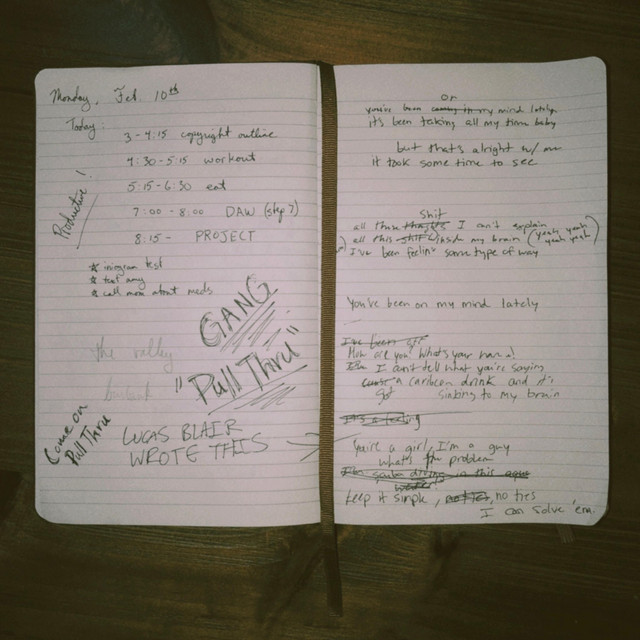 Monday, Feb. 10th
Today:
3 - 4:15 copyright outline
4:30 - 5:15 workout
5:15 - 6:30 eat
7:00 - 8:00 DAW (step 7)
8:15 - PROJECT
Productive!
test
call mom about meds
GANG
"Pull Thru"
the valley
Come on
Pull Thru
LUCAS BLAIR
WROTE THIS
or
you've been my mind lately
it's been taking all my time baby
but that's alright w/ me
it took some time to see
Shit
all these I can't explain
all this inside my brain (yeah yeah yeah yeah)
I've been feelin' some type of way
You've been on my mind lately
I've been off
How are you? What's your name?
I can't tell what you're saying
a caribean drink and it's
got sinking to my brain
It's a feeling
You're a girl, I'm a guy
what's the problem
in this
keep it simple, no ties
I can solve 'em